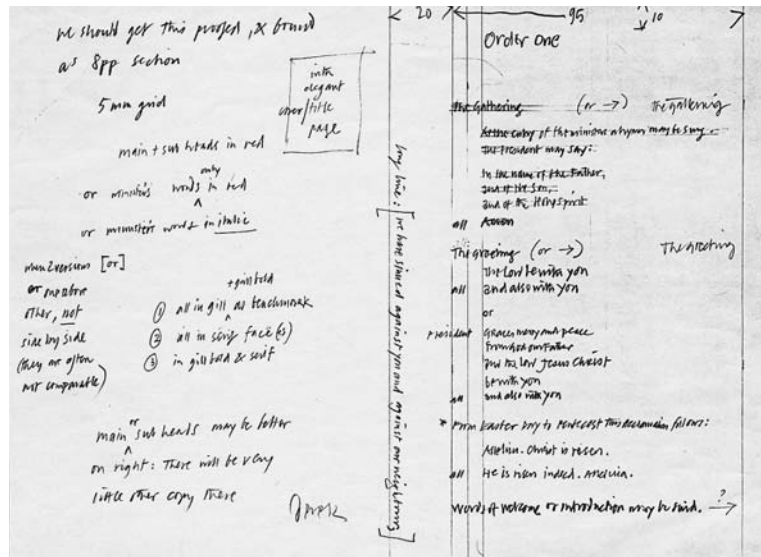 we should get this proofed, & bound
as 8pp section
5 mm grid
with
elegant
cover/title
page
main + sub heads in red
only
or minister's words in red
or minister's words in italic
[or]
other, not
side by side
(they are often
not comparable)
+ gill bold
① all in gill as benchmark
② all in serif face(s)
③ in gill bold & serif
or
main sub heads may be better
on right: There will be very
little other copy there
Derek
long line: [we have sinned against you and against our neighbours]
20
95
10
Order One
The Gathering (or →) The gathering
At the entry of the ministers a hymn may be sung.
The President may say:
In the name of the Father,
and of the Son,
and of the Holy Spirit
all Amen
The greeting (or →) The greeting
The Lord be with you
all and also with you
or
President Grace, mercy and peace
from God our Father
and the Lord Jesus Christ
be with you
all and also with you
* From Easter Day to Pentecost this acclamation follows:
Alleluia. Christ is risen.
all He is risen indeed. Alleluia.
Words of welcome or introduction may be said. ? →